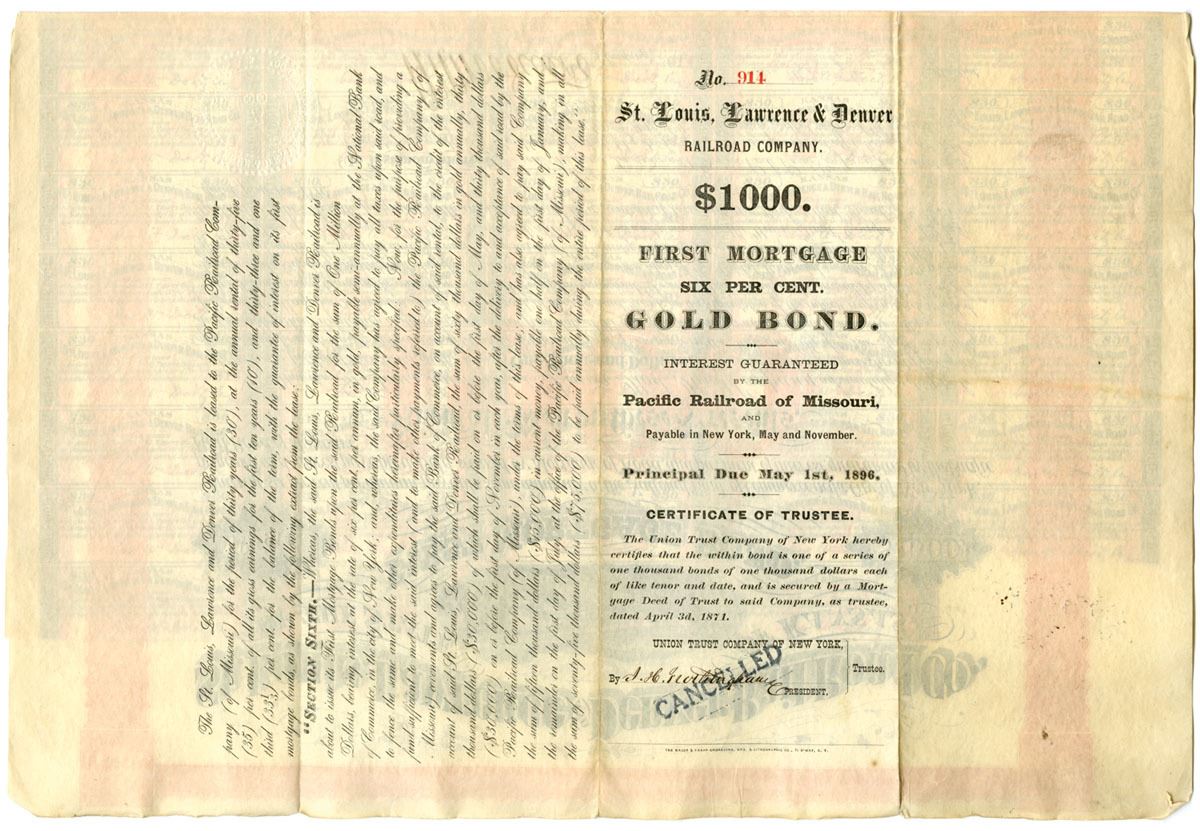 No. 914
St. Louis, Lawrence & Denver
RAILROAD COMPANY.
$1000.
FIRST MORTGAGE
SIX PER CENT.
GOLD BOND.
INTEREST GUARANTEED
BY THE
Pacific Railroad of Missouri,
AND
Payable in New York, May and November.
Principal Due May 1st, 1896.
CERTIFICATE OF TRUSTEE.
The Union Trust Company of New York hereby
certifies that the within bond is one of a series of
one thousand bonds of one thousand dollars each
of like tenor and date, and is secured by a Mort-
gage Deed of Trust to said Company, as trustee,
dated April 3d, 1871.
UNION TRUST COMPANY OF NEW YORK,
Trustee.
By
PRESIDENT.
CANCELLED
The St. Louis, Lawrence and Denver Railroad is leased to the Pacific Railroad Com-
pany (of Missouri) for the period of thirty years (30), at the annual rental of thirty-five
(35) per cent. of all its gross earnings for the first ten years (10), and thirty-three and one
third (33⅓) per cent. for the balance of the term, with the guarantee of interest on its first
mortgage bonds, as shown by the following extract from the lease:
"SECTION SIXTH.—Whereas, the said St. Louis, Lawrence and Denver Railroad is
about to issue its First Mortgage Bonds upon the said Railroad for the sum of One Million
Dollars, bearing interest at the rate of six per cent. per annum, in gold, payable semi-annually at the National Bank
of Commerce, in the city of New York; and, whereas, the said Company has agreed to pay all taxes upon said road, and
to fence the same and make other expenditures hereinafter particularly specified: Now, for the purpose of providing a
fund sufficient to meet the said interest (and to make other payments referred to) the Pacific Railroad Company (of
Missouri) covenants and agrees to pay the said Bank of Commerce, on account of said rental, to the credit of the interest
account of said St. Louis, Lawrence and Denver Railroad, the sum of sixty thousand dollars in gold annually, thirty
thousand dollars ($30,000) of which shall be paid on or before the first day of May, and thirty thousand dollars
($30,000) on or before the first day of November in each year, after the delivery to and acceptance of said road by the
Pacific Railroad Company (of Missouri) under the terms of this lease; and has also agreed to pay said Company
the sum of fifteen thousand dollars ($15,000) in current money, payable one-half on the first day of January, and
the remainder on the first day of July, at the office of the Pacific Railroad Company (of Missouri), making in all
the sum of seventy-five thousand dollars ($75,000) to be paid annually during the entire period of this lease."